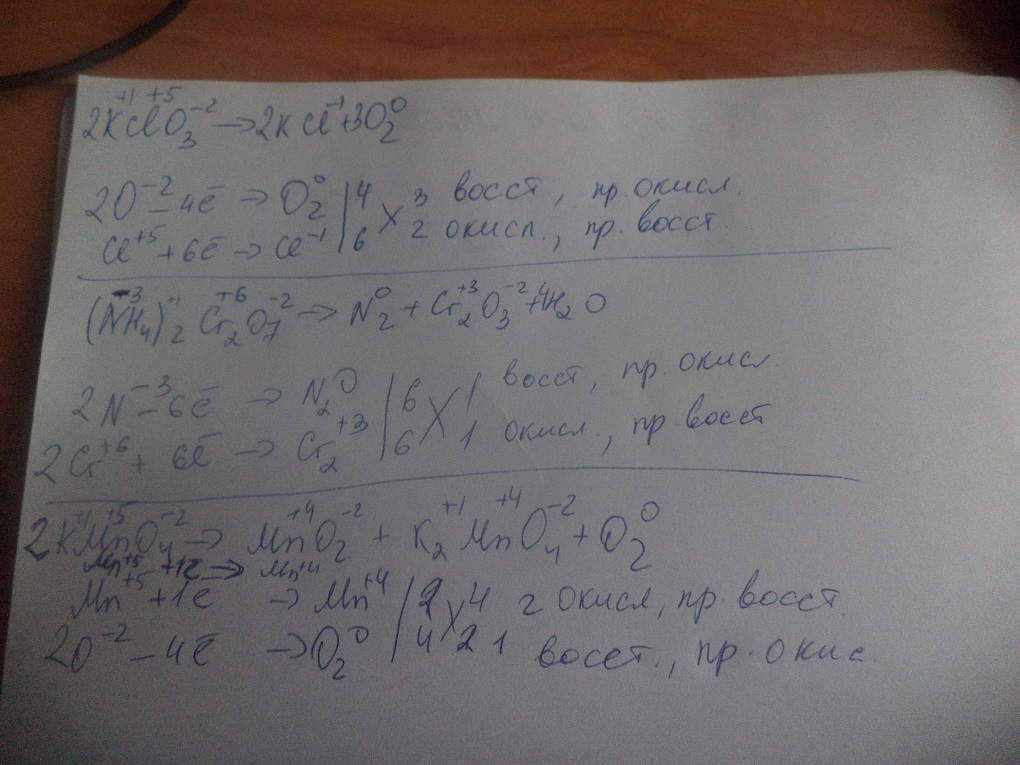 2K⁺¹Cl⁺⁵O₃⁻² → 2KCl⁻¹ + 3O₂⁰
2O⁻² – 4ē → O₂⁰ | 4 × 3 восст, пр окисл.
Cl⁺⁵ + 6ē → Cl⁻¹ | 6 2 окисл., пр. восст
(N⁻³H₄)₂⁺¹ Cr₂⁺⁶O₇⁻² → N₂⁰ + Cr₂⁺³O₃⁻² + 4H₂O
2N⁻³ – 6ē → N₂⁰ | 6 × 1 восст, пр окисл
2Cr⁺⁶ + 6ē → Cr₂⁺³ | 6 1 окисл., пр восст
2K⁺¹Mn⁺⁵O₄⁻² → Mn⁺⁴O₂⁻² + K₂⁺¹Mn⁺⁴O₄⁻² + O₂⁰
Mn⁺⁵ + 1ē → Mn⁺⁴
Mn⁺⁵ + 1ē → Mn⁺⁴ | 2 × 4 2 окисл, пр. восст.
2O⁻² – 4ē → O₂⁰ | 4 2 1 восст., пр. окис.